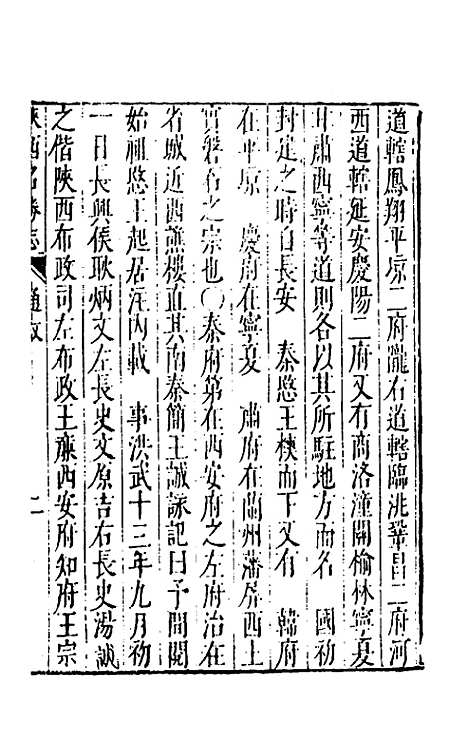 道轄鳳翔平凉二府隴右道轄臨洮鞏昌二府河
西道轄延安慶陽二府又有商洛潼關榆林寧夏
甘肅西寧等道則各以其所駐地方而名　國初
封建之時自長安　秦愍王樉而下又有　韓府
在平凉　慶府在寧夏　肅府在蘭州藩屏西土
實磐石之宗也〇秦府第在西安府之左府治在
省城近西譙樓直其南秦簡王誠詠記曰予間閱
始祖愍王起居注内載　事洪武十三年九月初
一日長興侯耿炳文左長史文原吉右長史湯誠
之偕陝西布政司左布政王廉西安府知府王宗
陝西名勝志　通攷　二